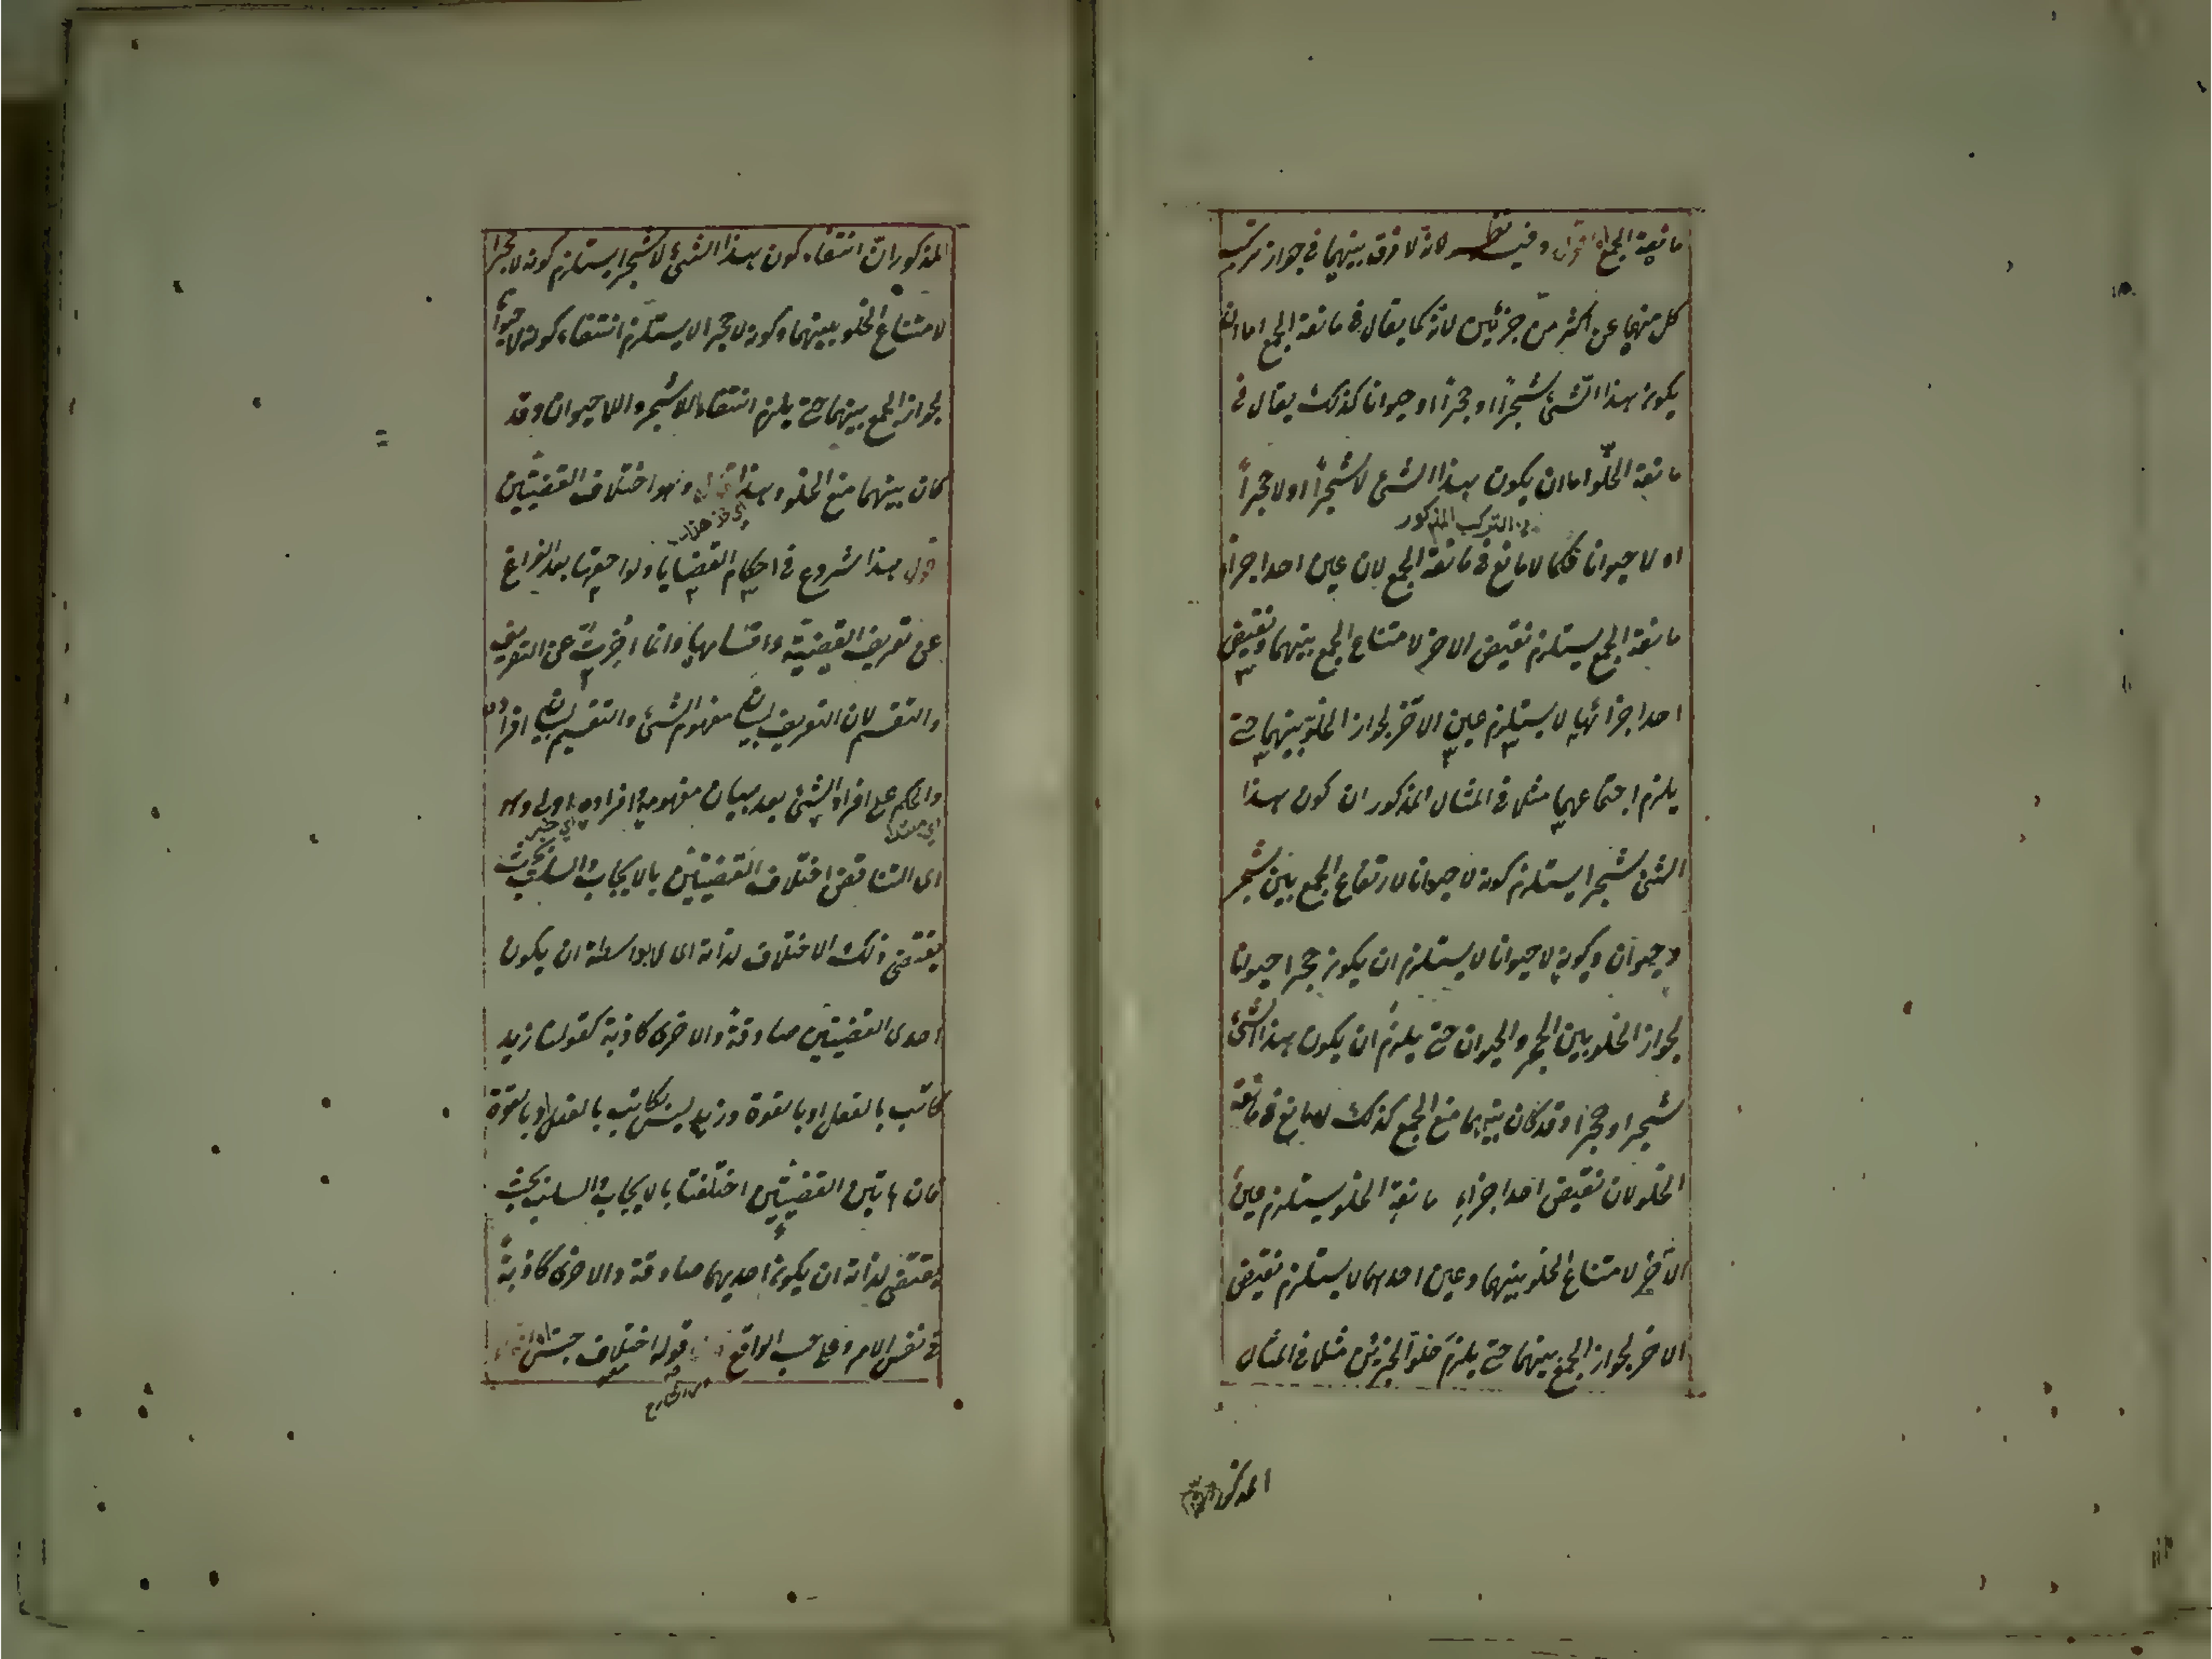 مانعة الجمع اه اقول وفيه نظر لانه لا فرق بينهما في جواز تركيب
كل منهما عن اكثر من جزئين لانه كما يقال في مانعة الجمع اما ان
يكون هذا الشئ شجرا او حجرا او حيوانا كذلك يقال في
مانعة الخلو اما ان يكون هذا الشئ لا شجرا او لا حجرا
من التركيب المذكور
او لا حيوانا فكما لا مانع في مانعة الجمع لان عين احد اجزاء
مانعة الجمع يستلزم نقيض الاخر لامتناع الجمع بينهما ونقيض
احد اجزائها لا يستلزم عين الاخر لجواز الخلو بينهما حتى
يلزم اجتماعهما مثلا في المثال المذكور ان كون هذا
الشئ شجرا يستلزم كونه لا حيوانا لارتفاع الجمع بين شجر
وحيوان وكونه لا حيوانا لا يستلزم ان يكون حجرا حيوانا
لجواز الخلو بين الحجر والحيوان حتى يلزم ان يكون هذا الشئ
شجرا وحجرا وقد كان بينهما منع الجمع كذلك لا مانع في مانعة
الخلو لان نقيض احد اجزاء مانعة الخلو يستلزم عين
الآخر لامتناع الخلو بينهما وعين احدهما لا يستلزم نقيض
الاخر لجواز الجمع بينهما حتى يلزم خلو الجزئين مثلا في المثال
المذكور
المذكور ان انتفاء كون هذا الشئ لا شجرا يستلزم كونه لا حجرا
لامتناع الخلو بينهما وكونه لا حجرا لا يستلزم انتفاء كونه لا حيوانا
لجواز الجمع بينهما حتى يلزم انتفاء اللاشجر واللاحيوان وقد
كان بينهما منع الخلو وهذا قال وهو اختلاف القضيتين
اقول هذا شروع في احكام القضايا ولواحقها بعد الفراغ
عن تعريف القضية واقسامها وانما اخرت عن التعريف
والتقسيم لان التعريف لبيان مفهوم الشئ والتقسيم لبيان افراده
والحكم على افراد الشئ بعد بيان مفهومه وافراده اولى وهو
اي مبتدا اي خبر
اى التناقض اختلاف القضيتين بالايجاب والسلب بحيث
يقتضى ذلك الاختلاف لذاته اى لا بواسطة ان يكون
احدى القضيتين صادقة والاخرى كاذبة كقولنا زيد
كاتب بالفعل او بالقوة وزيد ليس بكاتب بالفعل او بالقوة
فان هاتين القضيتين اختلفتا بالايجاب والسلب بحيث
يقتضى لذاته ان يكون احديهما صادقة والاخرى كاذبة
في نفس الامر وعلى حسب الواقع قوله اختلاف جنس